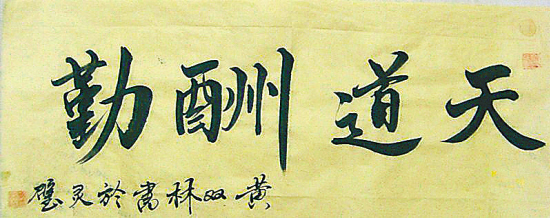 天道酬勤
黄双林書於灵璧